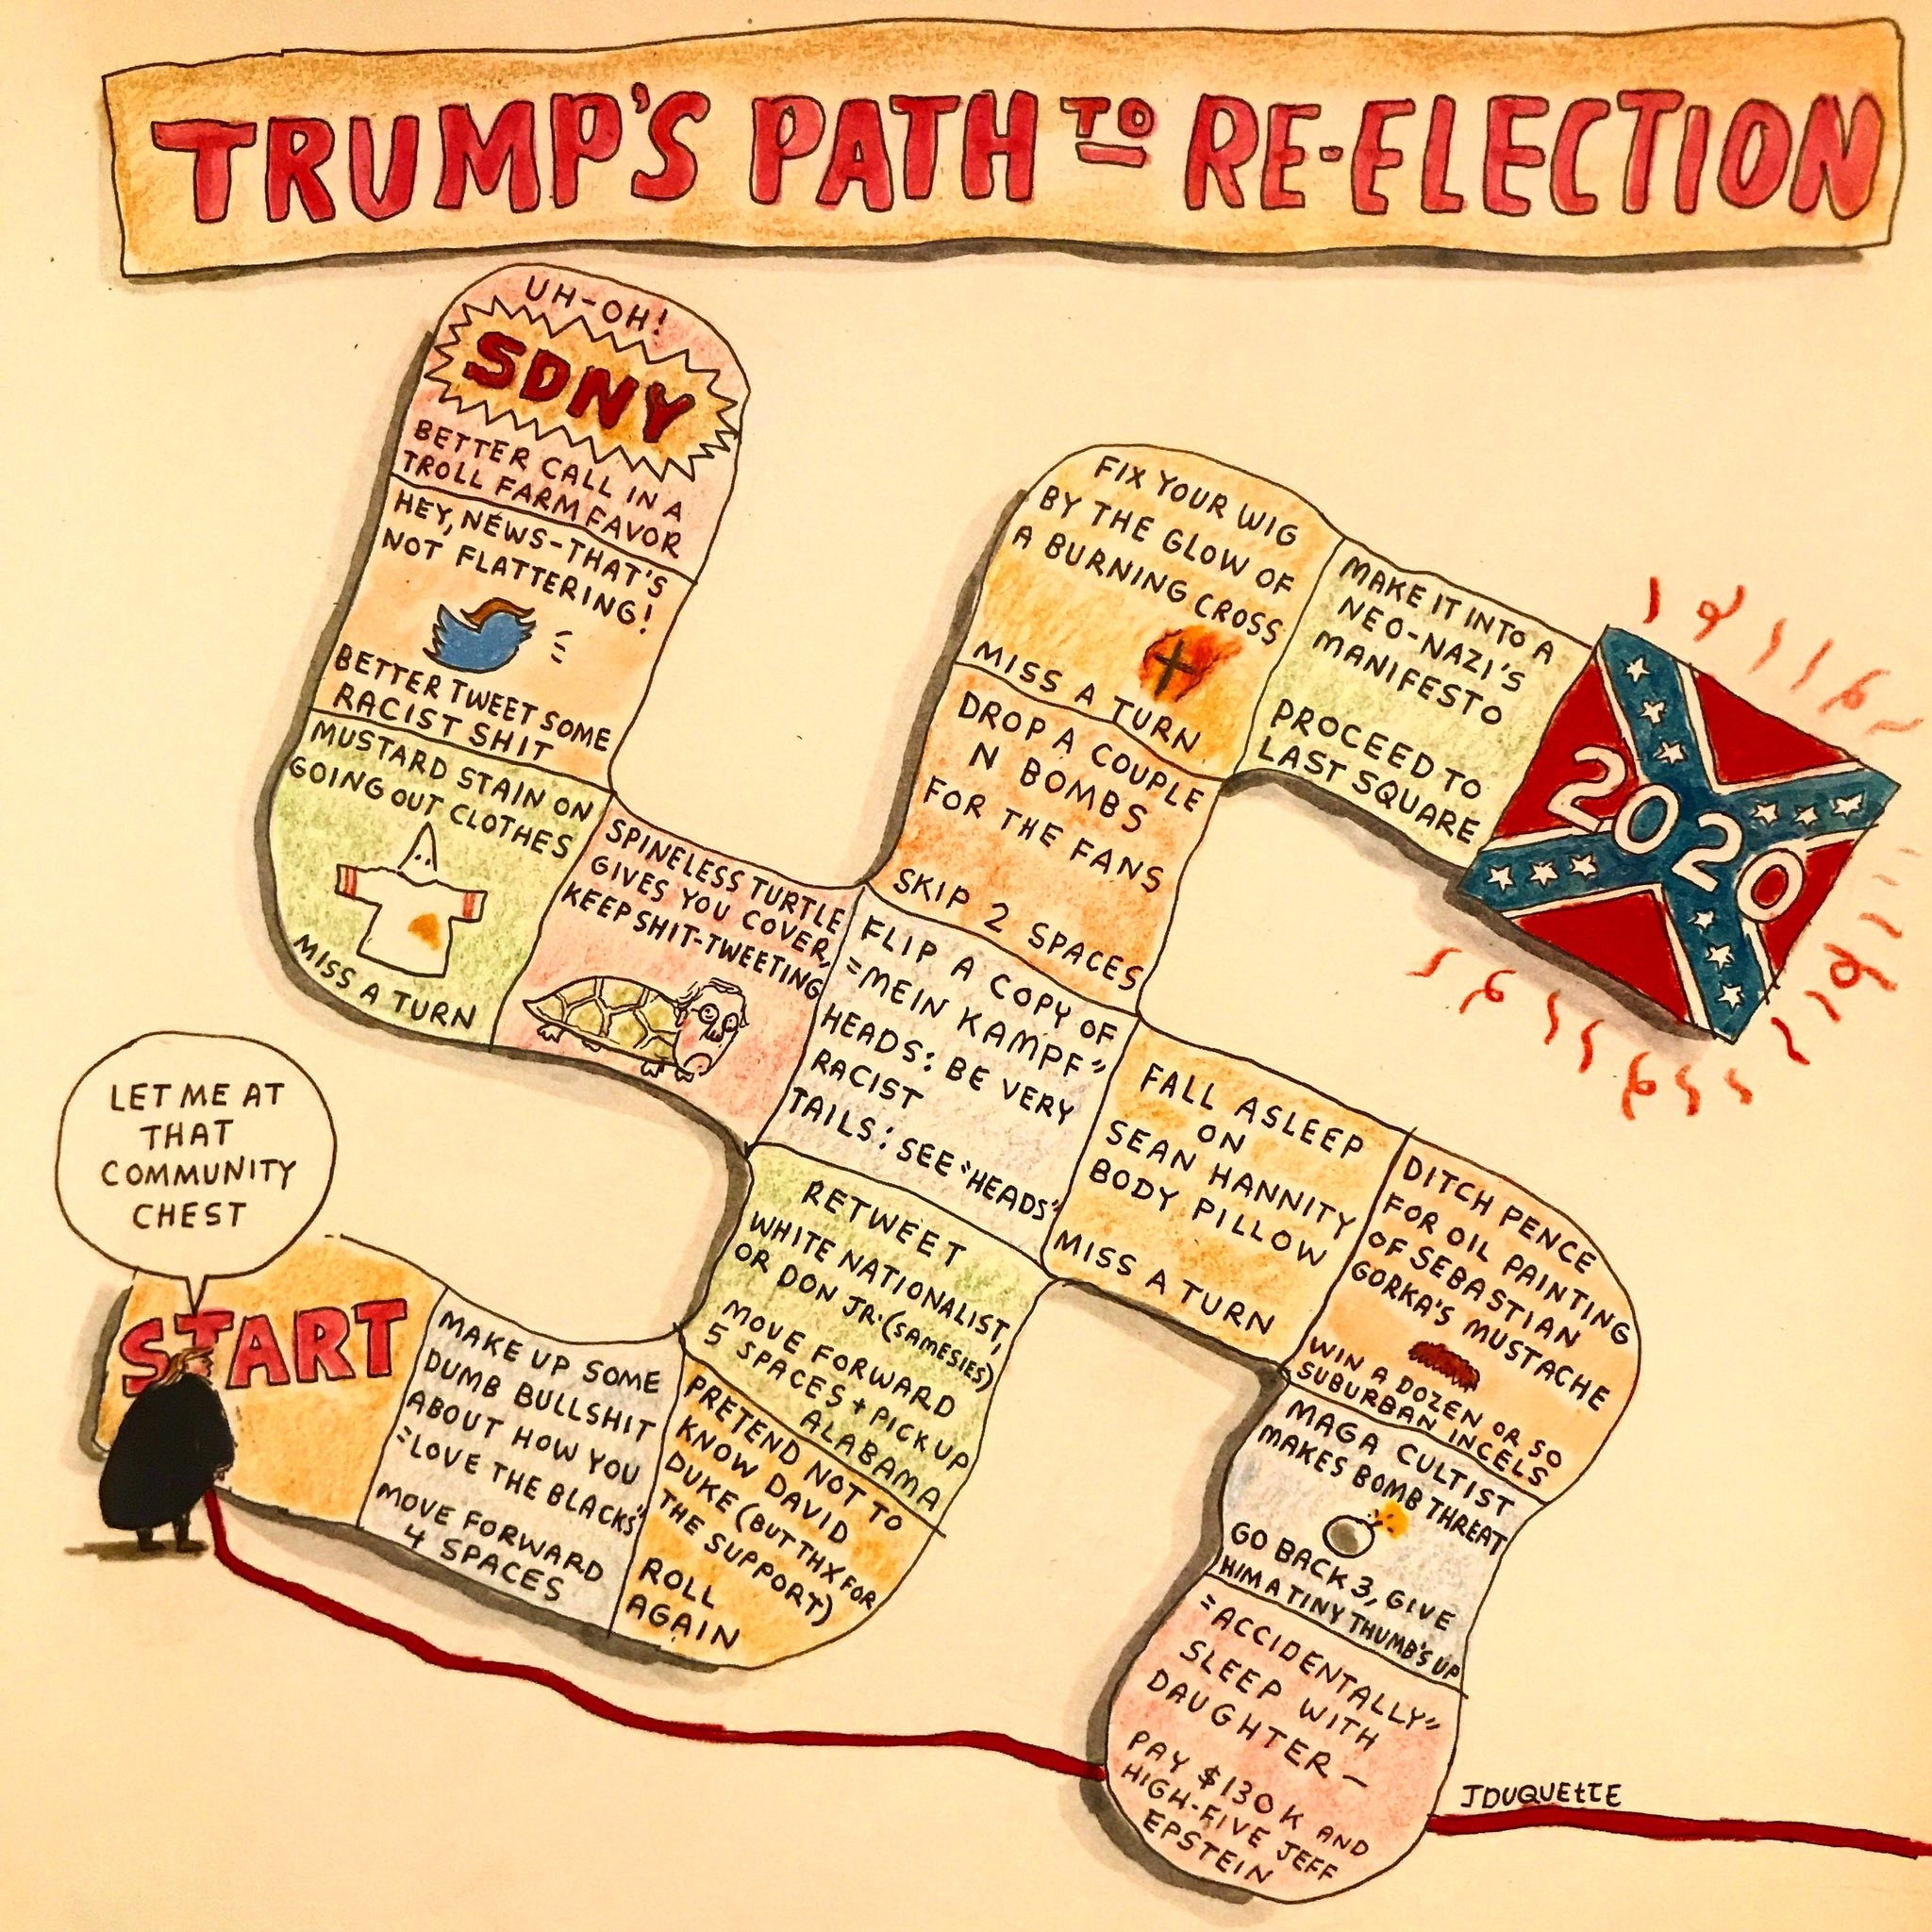 TRUMP'S PATH TO RE-ELECTION
UH-OH!
SDNY
BETTER CALL IN A
TROLL FARM FAVOR
HEY, NEWS-THAT'S
NOT FLATTERING!
BETTER TWEET SOME
RACIST SHIT
MUSTARD STAIN ON
GOING OUT CLOTHES
MISS A TURN
SPINELESS TURTLE
GIVES YOU COVER,
KEEP SHIT-TWEETING
FLIP A COPY OF
"MEIN KAMPF"
HEADS: BE VERY
RACIST
TAILS: SEE "HEADS"
FIX YOUR WIG
BY THE GLOW OF
A BURNING CROSS
MISS A TURN
DROP A COUPLE
N BOMBS
FOR THE FANS
SKIP 2 SPACES
MAKE IT INTO A
NEO-NAZI'S
MANIFESTO
PROCEED TO
LAST SQUARE
2020
FALL ASLEEP
ON
SEAN HANNITY
BODY PILLOW
MISS A TURN
DITCH PENCE
FOR OIL PAINTING
OF SEBASTIAN
GORKA'S MUSTACHE
WIN A DOZEN OR SO
SUBURBAN INCELS
MAGA CULTIST
MAKES BOMB THREAT
GO BACK 3, GIVE
HIM A TINY THUMB'S UP
"ACCIDENTALLY"
SLEEP WITH
DAUGHTER —
PAY $130 K AND
HIGH-FIVE JEFF
EPSTEIN
RETWEET
WHITE NATIONALIST,
OR DON JR. (SAMESIES)
MOVE FORWARD
5 SPACES + PICK UP
ALABAMA
PRETEND NOT TO
KNOW DAVID
DUKE (BUT THX FOR
THE SUPPORT)
ROLL
AGAIN
MAKE UP SOME
DUMB BULLSHIT
ABOUT HOW YOU
"LOVE THE BLACKS"
MOVE FORWARD
4 SPACES
START
LET ME AT
THAT
COMMUNITY
CHEST
JDUQUETTE